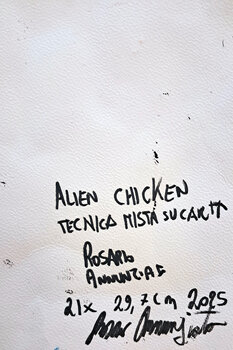 ALIEN CHICKEN
TECNICA MISTA SU CARTA
ROSARIO
ANNUNZIATA
21x 29,7 cm 2025